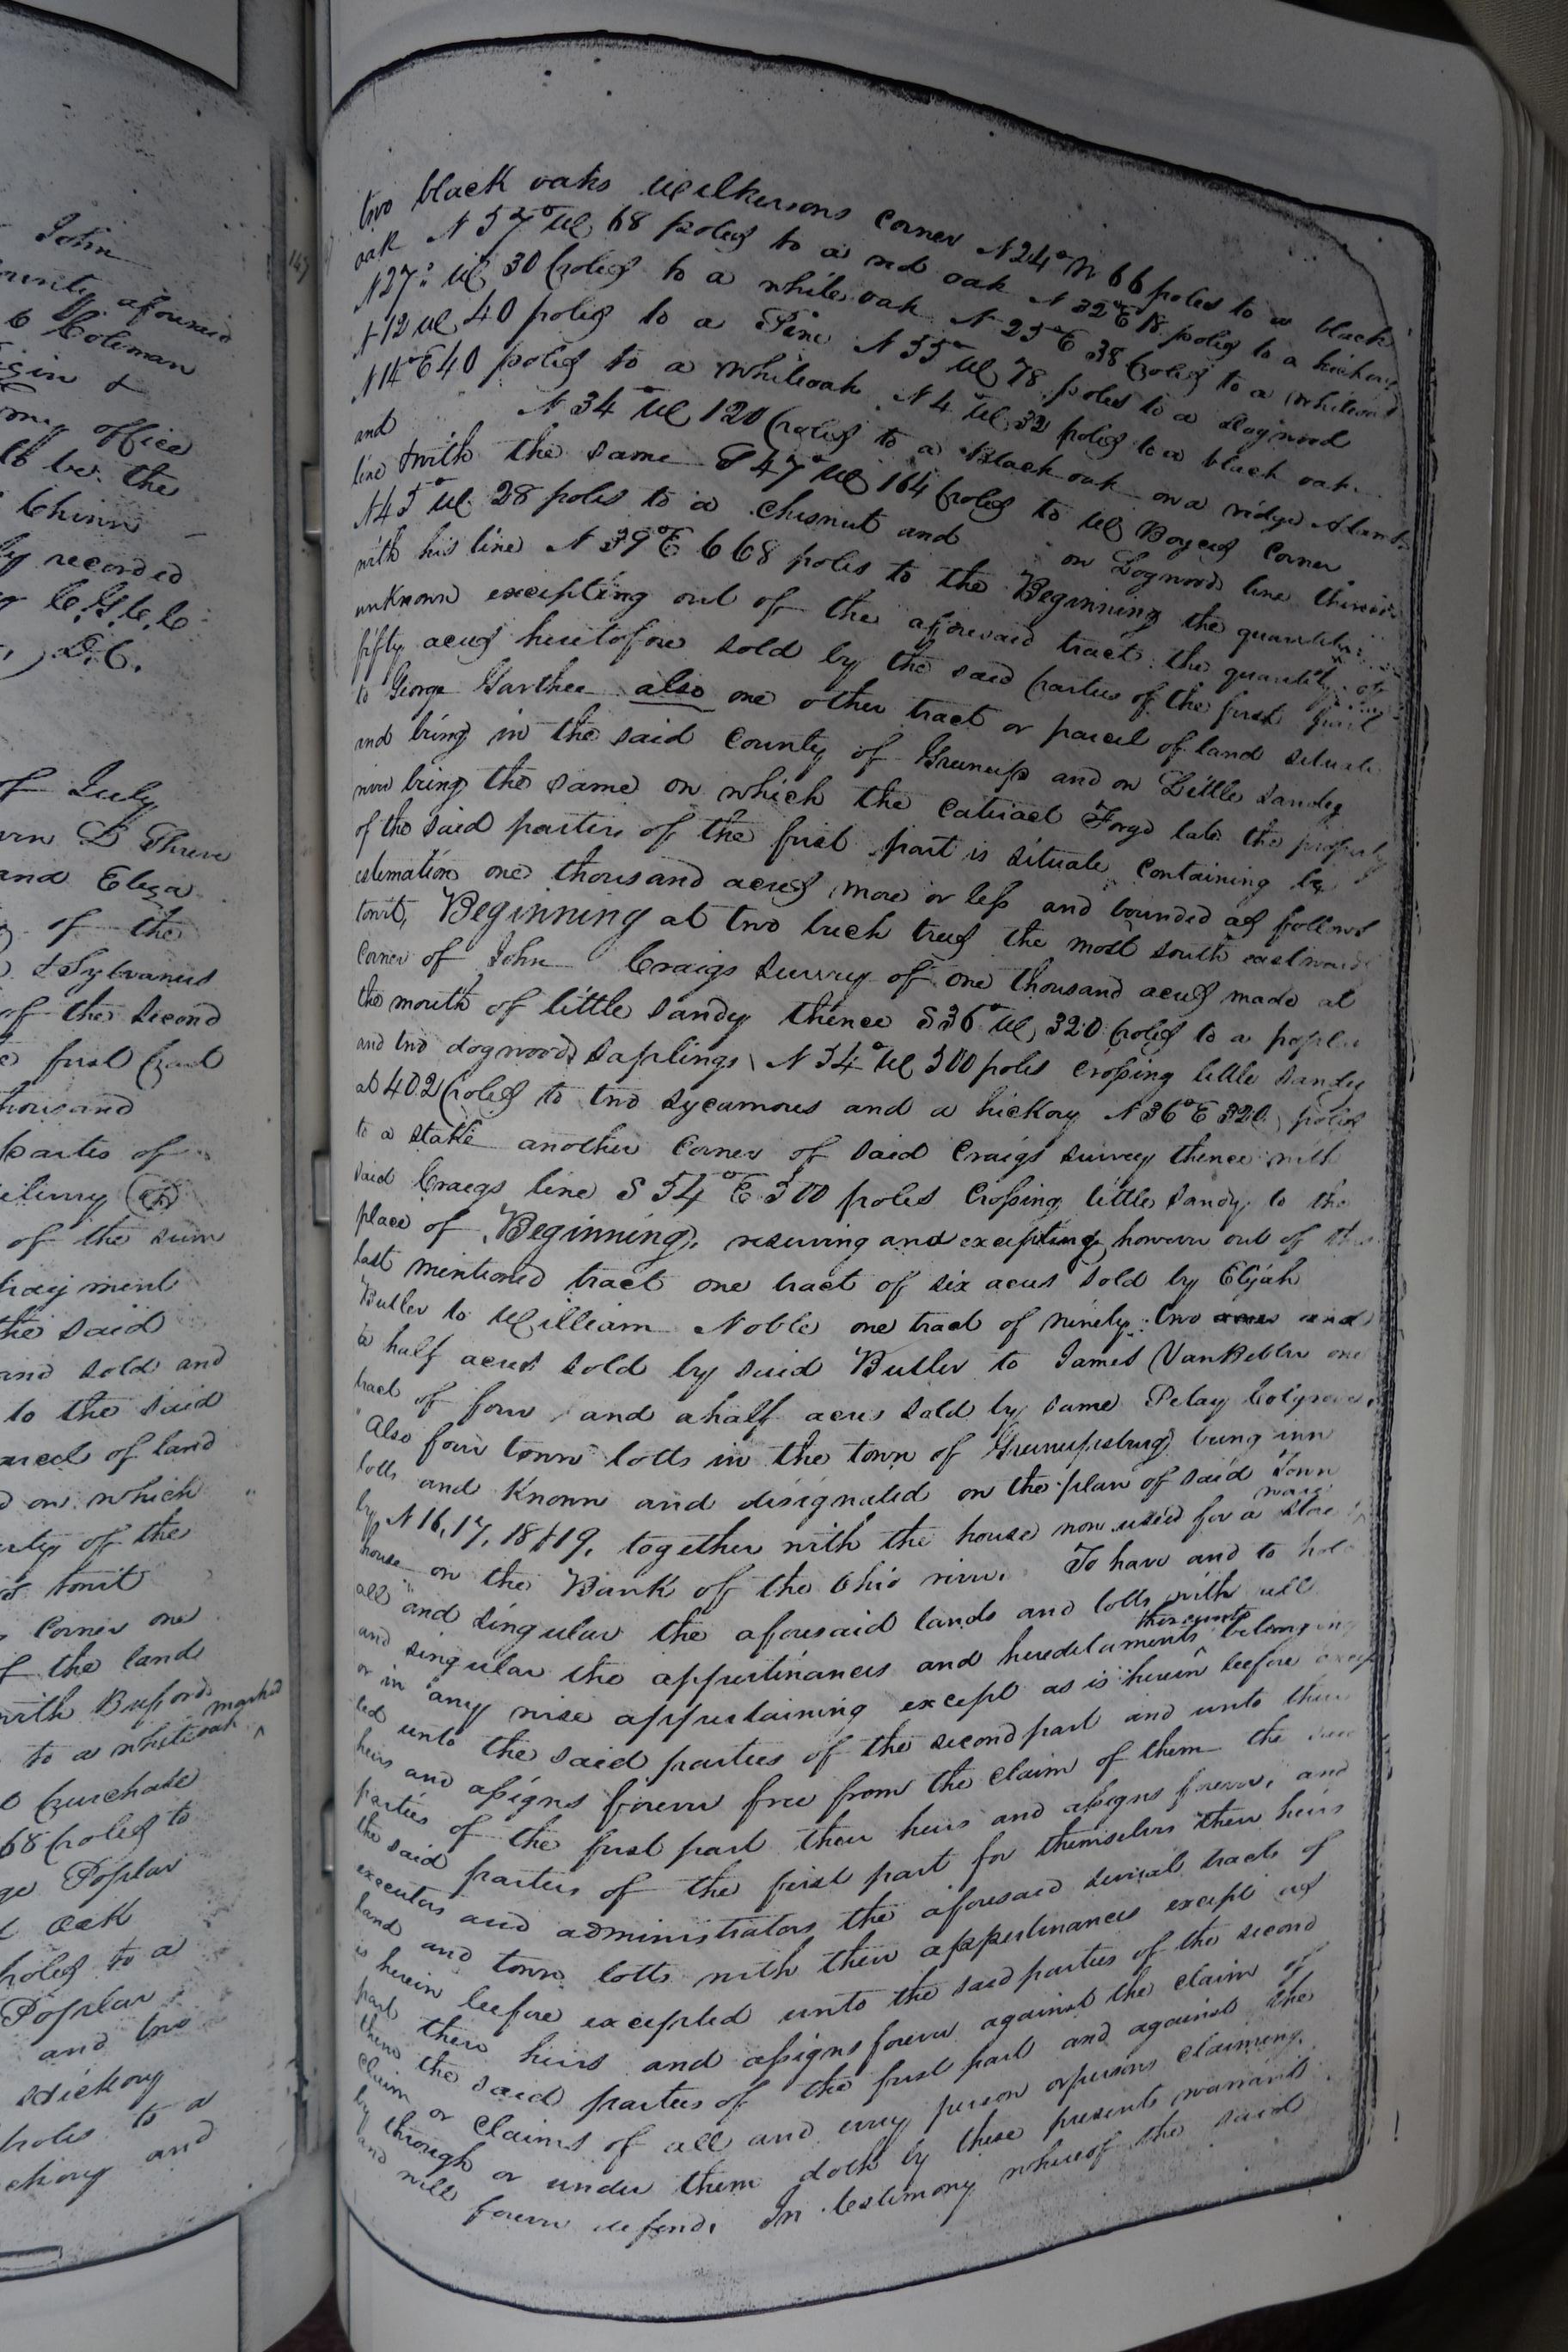 John
County aforesaid
& Coleman
gin &
my office
to be the
Chinn
ly recorded
C.G.C.C.
D.C.
of July
D Shreve
and Eliza
of the
& Sylvanus
of the second
first part
thousand
parties of
of the sum
payment
the said
and sold and
to the said
parcel of land
on which
of the
towit
Corner one
of the land
with Bufords
marked
to a whiteoak
purchase
68 poles to
Poplar
oak
poles to a
Poplar
and two
Hickory
poles to a
and
two black oaks Wilkersons corner N24°W 66 poles to a black
oak N57°W 68 poles to a red oak N32°E 18 poles to a hickory
N27° W 30 poles to a white oak N25°E 38 poles to a whiteoak
N12W 40 poles to a Pine N55°W 78 poles to a dogwood
N14°E 40 poles to a whiteoak N4 W 32 poles to a black oak
and N34°W 120 poles to a Black oak on a ridge
line & with the same S47°W 164 poles to W Boyces Corner
N45°W 28 poles to a chesnut and on Dogwoods line thence
with his line N39°E 668 poles to the Beginning the quantity
unknown excepting out of the aforesaid tract the quantity of
fifty acres heretofore sold by the said parties of the first part
to George Garthee also one other tract or parcel of land situate
and being in the said County of Greenup and on Little Sandy
river being the same on which the Cataract Forge late the property
of the said parties of the first part is situate containing by
estimation one thousand acres more or less and bounded as follows
towit, Beginning at two beech trees the most south eastward
corner of John Craigs survey of one thousand acres made at
the mouth of little Sandy thence S36°W 320 poles to a poplar
and two dogwood saplings N54°W 500 poles crossing little Sandy
at 402 poles to two sycamores and a hickory N36°E 320 poles
to a stake another Corner of said Craigs survey thence with
said Craigs line S54°E 500 poles crossing little Sandy to the
place of Beginning, reserving and excepting however out of the
last mentioned tract one tract of six acres sold by Elijah
Butler to William Noble one tract of ninety two acres and
a half acres sold by said Butler to James VanBebber one
tract of four and a half acres sold by same Pelay Colgrove
Also four town lotts in the town of Greenupsburg being inn
lotts and known and designated on the plan of said Town
by N 16, 17, 18 & 19, together with the house now used for a ware
house on the Bank of the Ohio river. To have and to hold
all and singular the aforesaid lands and lotts with all
and singular the appurtinances and hereditaments thereunto belonging
or in any wise appurtaining except as is herein before excep
ted unto the said parties of the second part and unto their
heirs and assigns forever free from the claim of them the said
parties of the first part their heirs and assigns forever, and
the said parties of the first part for themselves their heirs
executors and administrators the aforesaid several tracts of
land and town lotts with their appurtinances except as
is herein before excepted unto the said parties of the second
part their heirs and assigns forever against the claim of
them the said parties of the first part and against the
claim or claims of all and every person or persons claiming
by through or under them doth by these presents warrant
and will forever defend. In testimony whereof the said